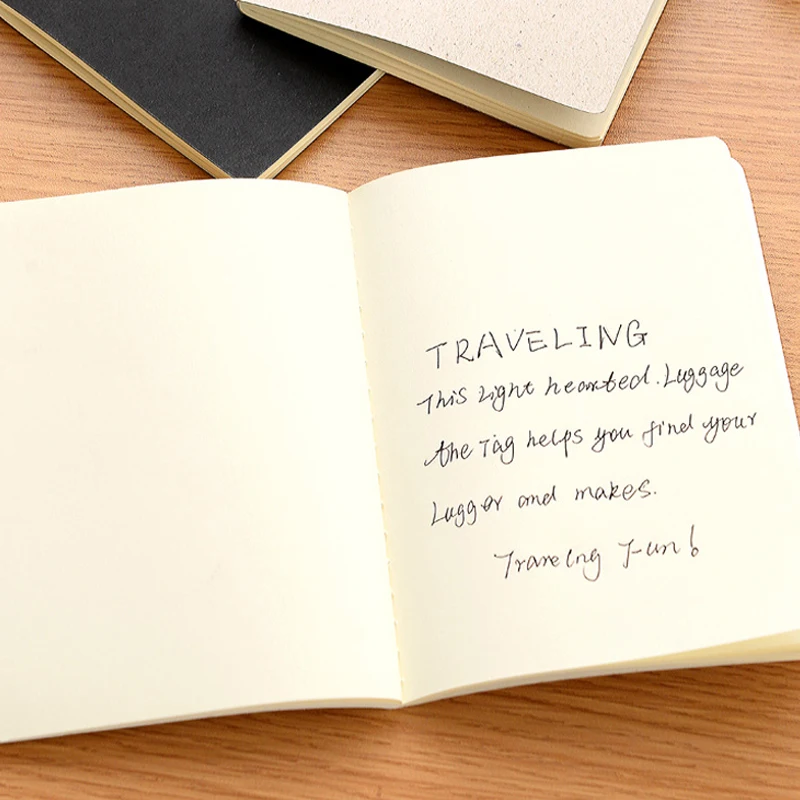 TRAVELING
This Light hearted. Luggage
the Tag helps you find your
Luggor and makes.
Travelng Fun!